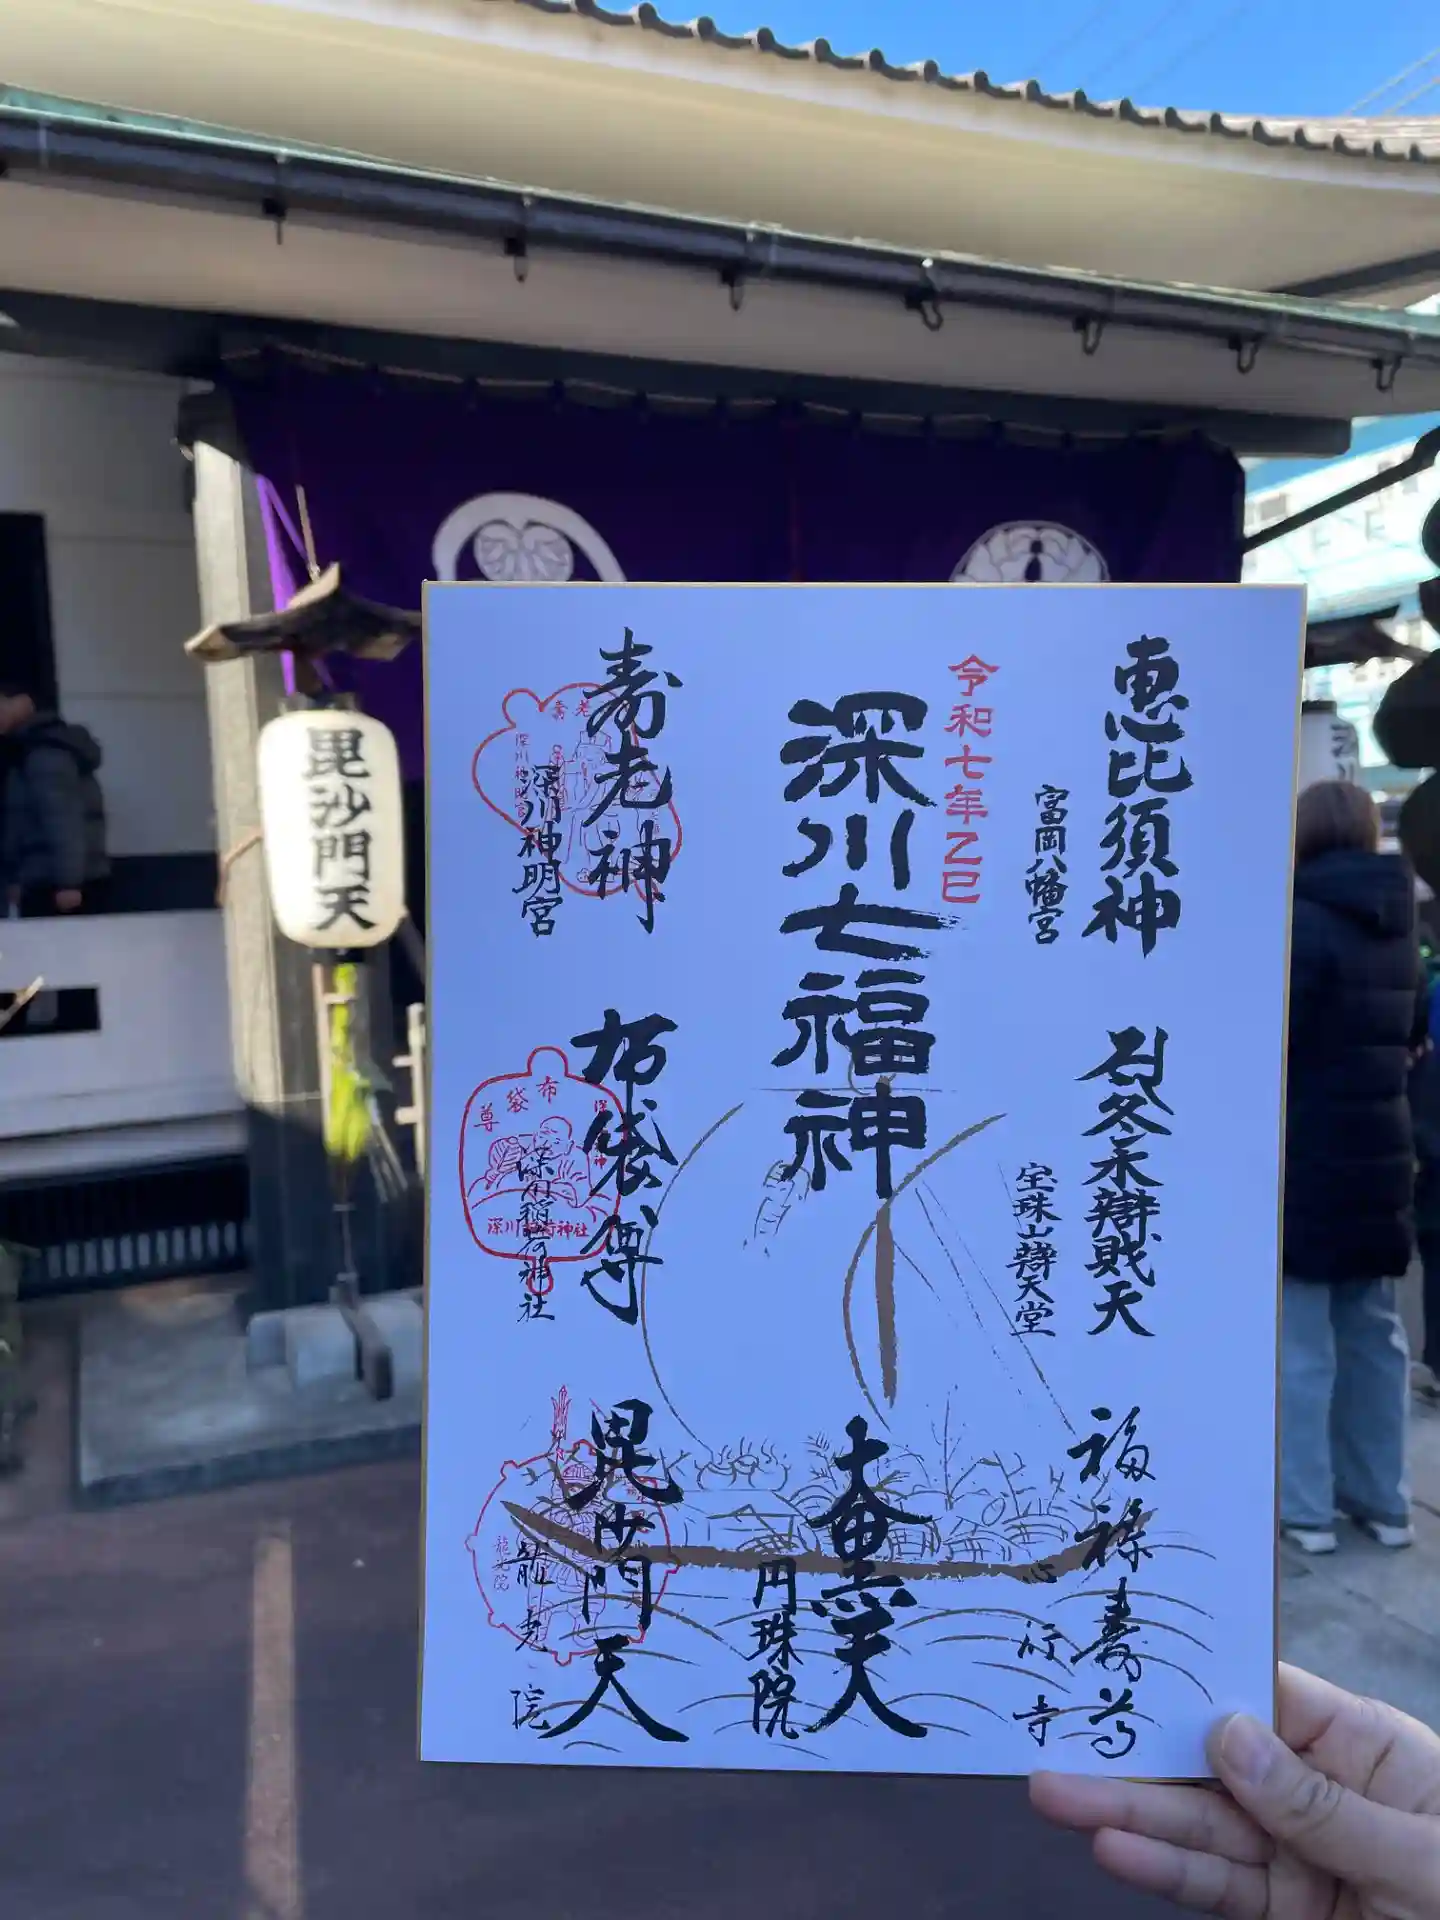 恵比須神
富岡八幡宮
冬木辯財天
宝珠山辯天堂
福禄寿
心行寺
令和七年乙巳
深川七福神
大黒天
円珠院
寿老神
深川神明宮
布袋尊
深川稲荷神社
毘沙門天
龍光院
布袋尊
深川稲荷神社
龍光院
毘沙門天